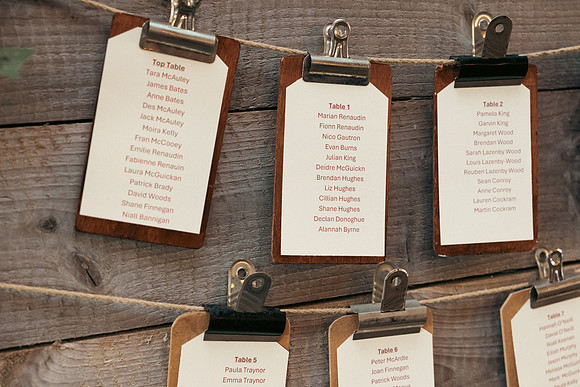 Top Table
Tara McAuley
James Bates
Anne Bates
Des McAuley
Jack McAuley
Moira Kelly
Fran McCooey
Emilie Renaudin
Fabienne Renauin
Laura McGuickan
Patrick Brady
David Woods
Shane Finnegan
Niall Bannigan
Table 1
Marian Renaudin
Fionn Renaudin
Nico Gautron
Evan Burns
Julian King
Deidre McGuickn
Brendan Hughes
Liz Hughes
Cillian Hughes
Shane Hughes
Declan Donoghue
Alannah Byrne
Table 2
Pamela King
Garvin King
Margaret Wood
Brendan Wood
Sarah Lazenby Wood
Louis Lazenby-Wood
Reuben Lazenby Wood
Sean Conroy
Anne Conroy
Lauren Cockram
Martin Cockram
Table 5
Paula Traynor
Emma Traynor
Table 6
Peter McArdle
Joan Finnegan
Patrick Woods
Table 7
Hannah O'Neill
David O'Neill
Niall Keenan
Eilish Murphy
Jason Murphy
Melissa McGui
Mark